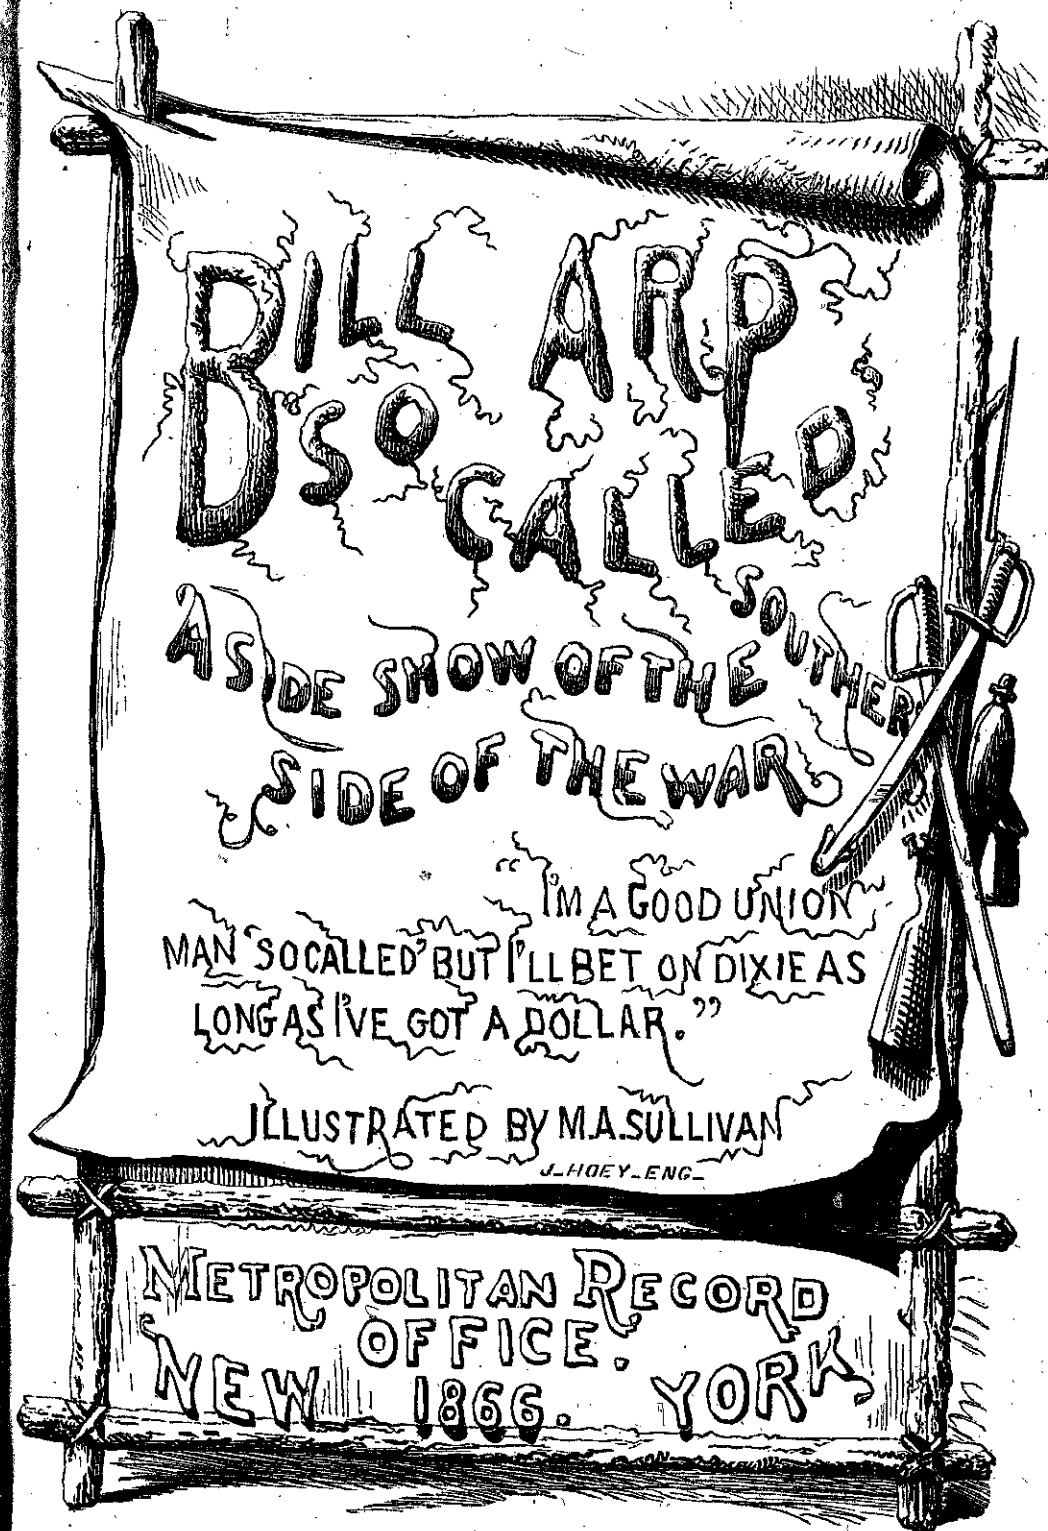 BILL ARP
SO CALLED
A SIDE SHOW OF THE SOUTHERN
SIDE OF THE WAR
“I'M A GOOD UNION
MAN ‘SO CALLED’ BUT I'LL BET ON DIXIE AS
LONG AS I'VE GOT A DOLLAR.”
ILLUSTRATED BY M.A. SULLIVAN
J_HOEY_ENG_
METROPOLITAN RECORD
OFFICE.
NEW 1866. YORK